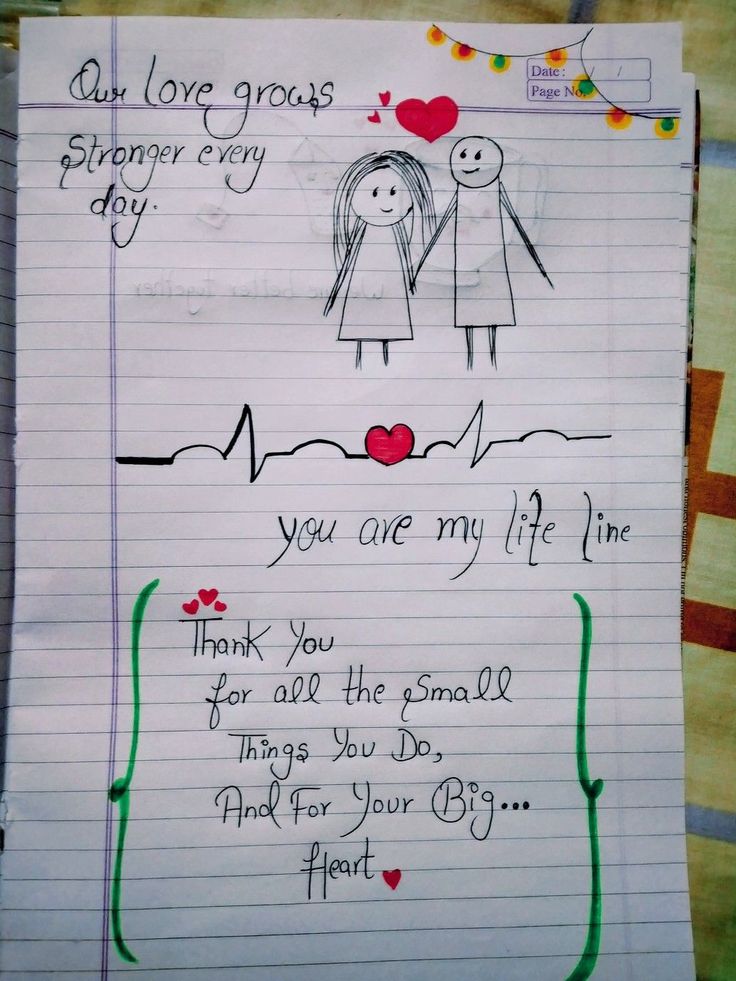 Date: / /
Page No.
Our love grows
Stronger every
day.
We are better together
you are my life line
Thank You
for all the Small
Things You Do,
And For Your Big...
Heart